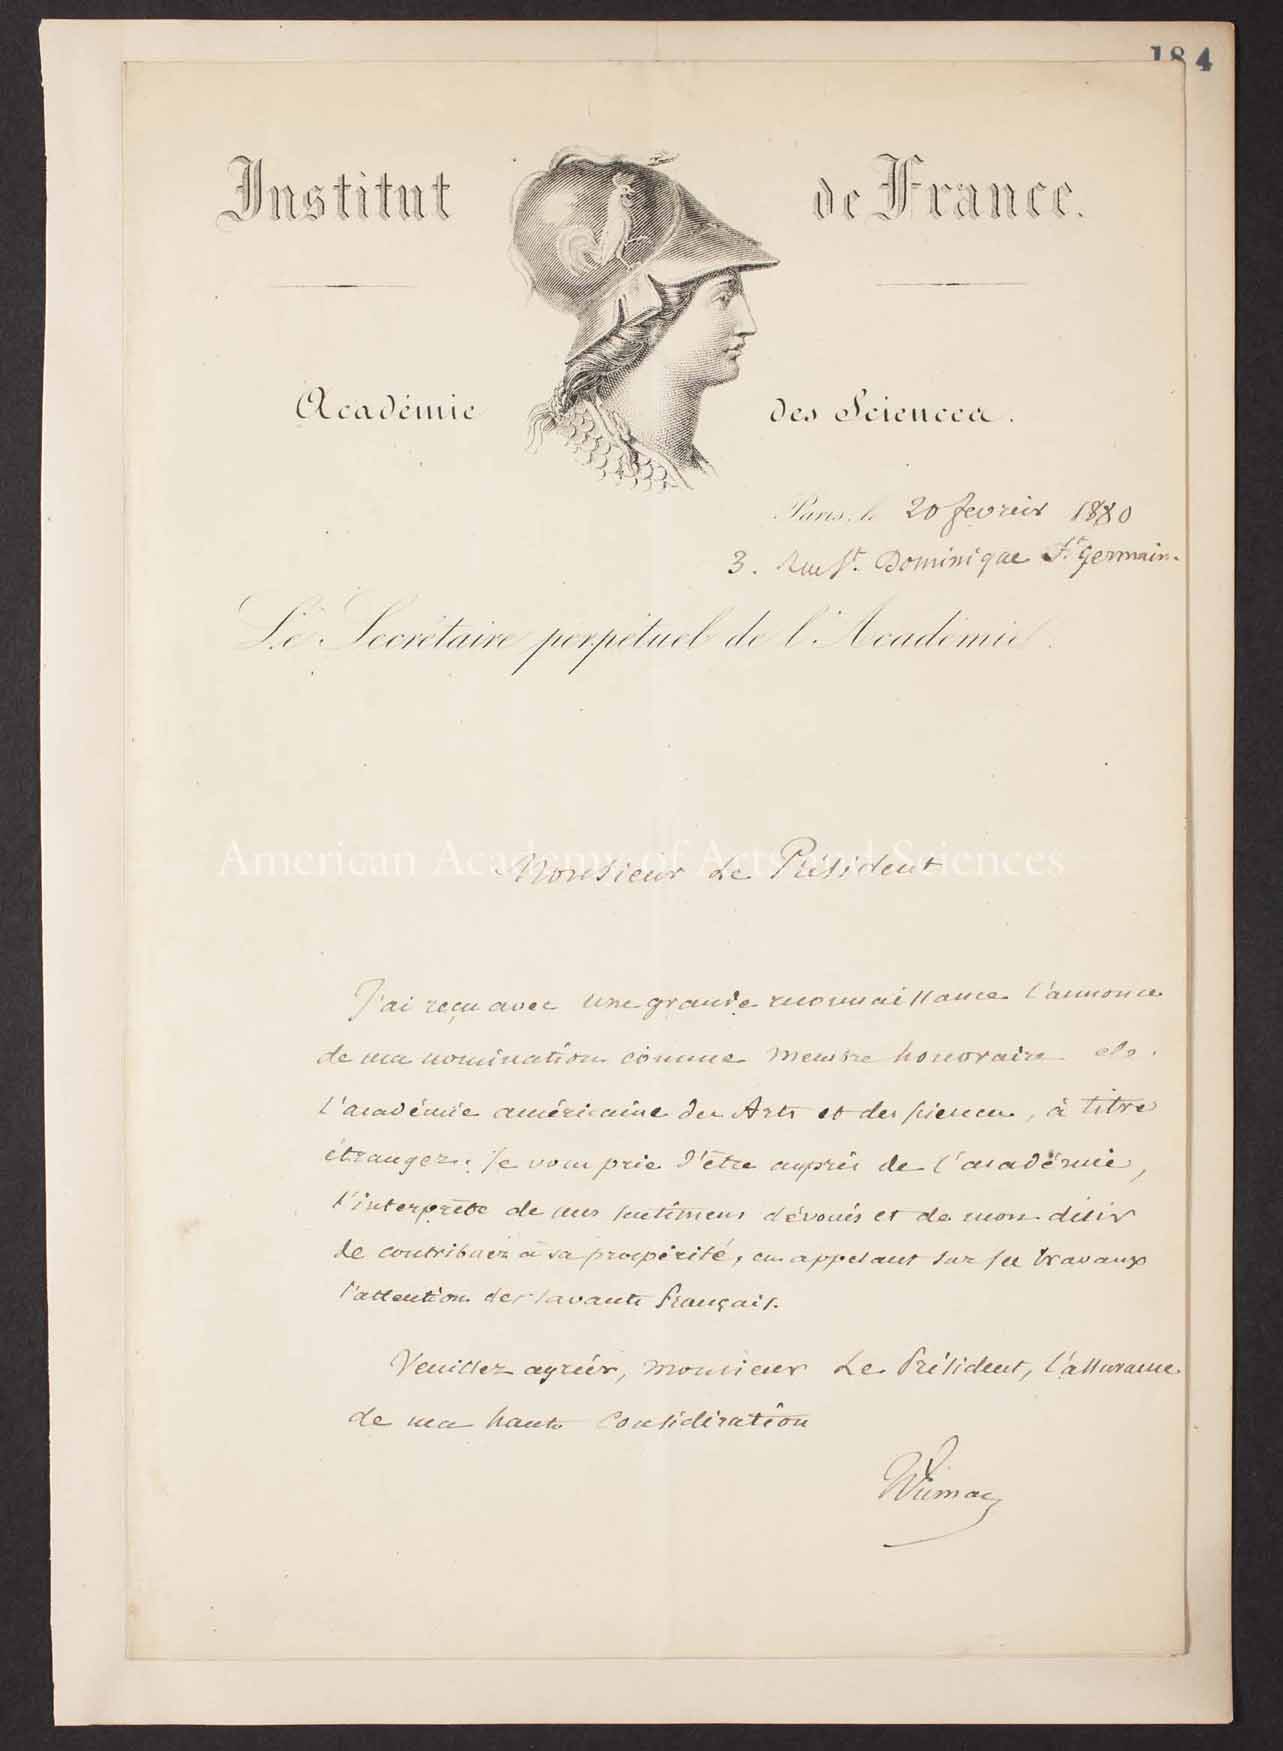 184
Institut de France.
Académie des Sciences.
Paris, le 20 fevrier 1880
3. Rue St. Dominique F.t Germain.
Le Secrétaire perpétuel de l'Académie.
American Academy of Arts and Sciences
Monsieur Le Président
J'ai reçu avec une grande reconnaissance l'annonce
de ma nomination comme membre honoraire de
l'académie américaine des Arts et des sciences, à titre
étranger. Je vous prie d'être auprès de l'académie,
l'interprète de mes sentimens dévoués et de mon désir
de contribuer à sa prospérité, en appelant sur ses travaux
l'attention des savants français.
Veuillez agréer, monsieur Le Président, l'assurance
de ma haute considération
Dumas